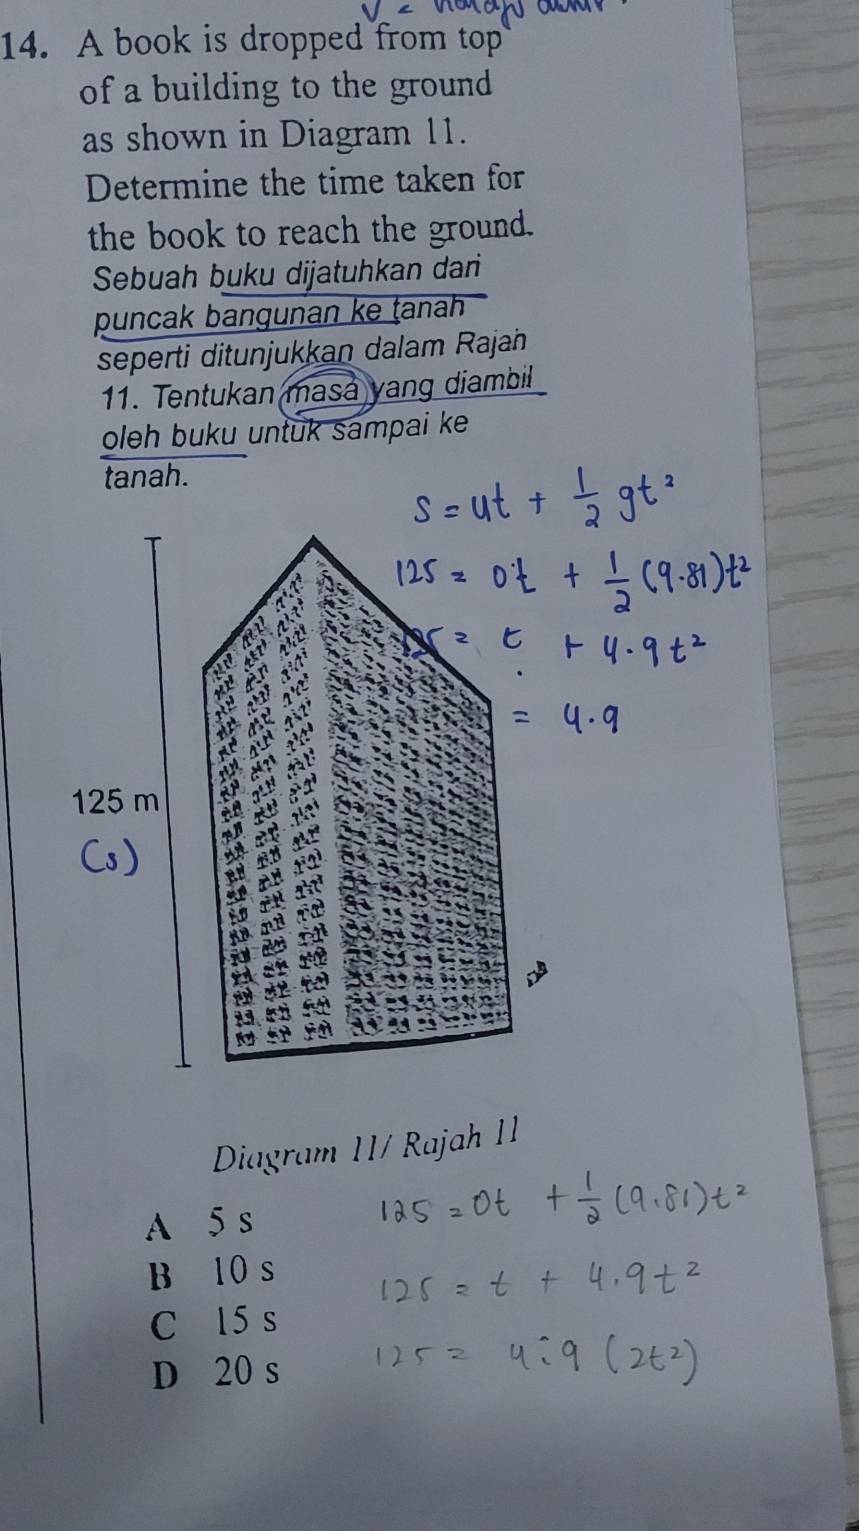 V =
14. A book is dropped from top
of a building to the ground
as shown in Diagram 11.
Determine the time taken for
the book to reach the ground.
Sebuah buku dijatuhkan dari
puncak bangunan ke tanah
seperti ditunjukkan dalam Rajah
11. Tentukan masa yang diambil
oleh buku untuk sampai ke
tanah.
s = ut + 1/2 gt²
125 = 0t + 1/2 (9.81)t²
125 = t + 4.9t²
= 4.9
125 m
(s)
Diagram 11/ Rajah 11
A 5 s
B 10 s
C 15 s
D 20 s
125 = 0t + 1/2 (9.81)t²
125 = t + 4.9t²
125 = 4.9 (2t²)